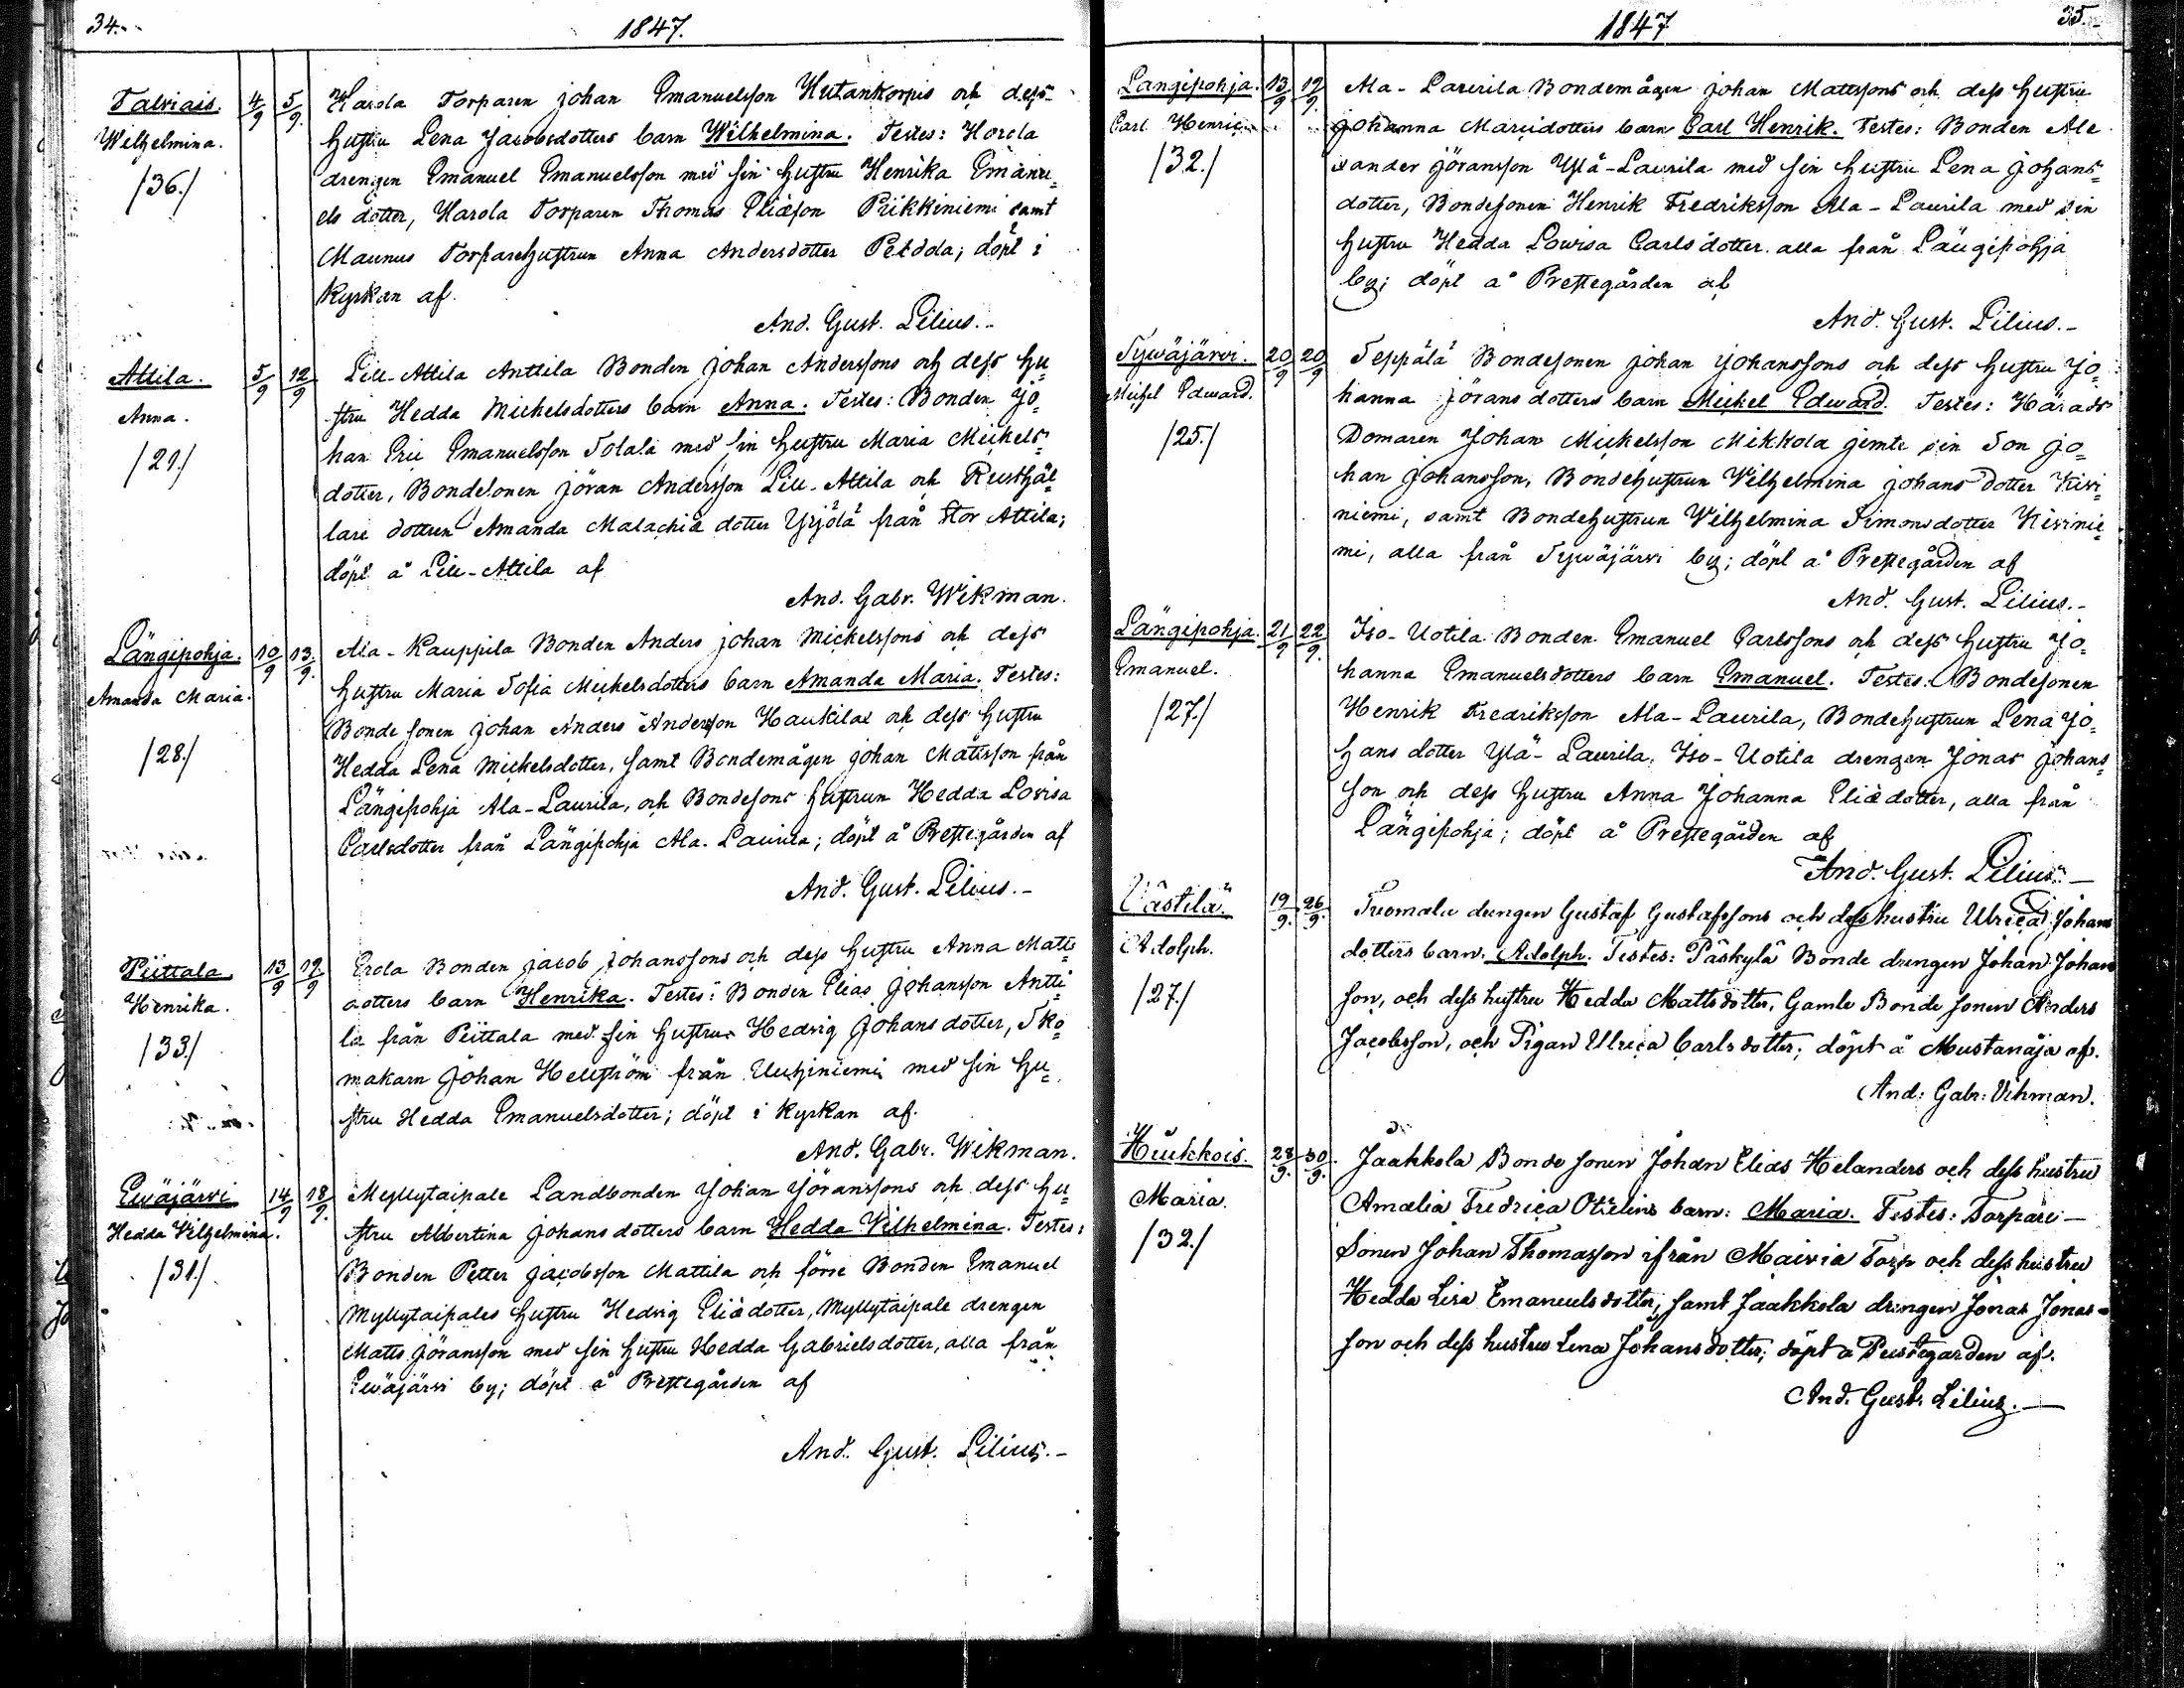 34.
1847.
Talviais. 4/9 5/9. Harola Torparen Johan Emanuelsson Hutankorpis och dess
Wilhelmina. hustru Lena Jacobsdotters barn Wilhelmina. Testes: Harola
/36./ drengen Emanuel Emanuelsson med sin hustru Henrika Emanu=
els dotter, Harola Torparen Thomas Eliæson Piikkiniemi samt
Maunus Torparehustrun Anna Andersdotter Peldola; döpt i
Kyrkan af.
And. Gust. Lilius.
Attila. 5/9 12/9 Lill-Attila Anttila Bonden Johan Anderssons och dess hu=
Anna. stru Hedda Mickelsdotters barn Anna. Testes: Bonden Jo=
/21./ han Eric Emanuelsson Solala med sin hustru Maria Mickels=
dotter, Bondesonen Jöran Andersson Lill-Attila och Rusthål=
lare dottren Amanda Malachiæ dotter Yrjölä från Stor Attila;
döpt å Lill-Attila af
And. Gabr. Wikman.
Längipohja. 10/9 13/9. Ala-Kauppila Bonden Anders Johan Mickelssons och dess
Amanda Maria. hustru Maria Sofia Mickelsdotters barn Amanda Maria. Testes:
Bonde sonen Johan Anders Andersson Haukilax och dess hustru
/28./ Hedda Lena Mickelsdotter, samt Bondemågen Johan Mattsson från
Längipohja Ala-Laurila, och Bondesons hustrun Hedda Lovisa
Carlsdotter från Längipohja Ala-Laurila; döpt å Prestegården af
And. Gust. Lilius.-
Piittala. 13/9 19/9 Erola Bonden Jacob Johanssons och dess hustru Anna Matts=
Henrika. dotters barn Henrika. Testes: Bonden Elias Johansson Antti=
/33./ la från Piittala med sin hustru Hedvig Johans dotter, Sko=
makarn Johan Hellström från Uuhiniemi med sin hu=
stru Hedda Emanuelsdotter; döpt i Kyrkan af.
And. Gabr. Wikman.
Ewäjärvi 14/9 18/9. Myllytaipale Landbonden Johan Jöranssons och dess hu=
Hedda Vilhelmina. stru Albertina Johans dotters barn Hedda Vilhelmina. Testes:
/31./ Bonden Petter Jacobsson Mattila och förre Bonden Emanuel
Myllytaipales hustru Hedvig Eliædotter, Myllytaipale drengen
Matts Jöransson med sin hustru Hedda Gabrielsdotter, alla från
Ewäjärvi by; döpt å Prestegården af
And. Gust. Lilius.-
1847
35.
Längipohja. 13/9 19/9. Ala-Laurila Bondemågen Johan Mattssons och dess hustru
Carl Henric Johanna Marcidotters barn Carl Henrik. Testes: Bonden Ale
/32./ xander Jöransson Ylä-Laurila med sin hustru Lena Johans=
dotter, Bondesonen Henrik Fredriksson Ala-Laurila med sin
hustru Hedda Lowisa Carlsdotter. alla från Längipohja
by; döpt å Prestegården af
And. Gust. Lilius.-
Sywäjärvi. 20/9 20/9 Seppälä Bondesonen Johan Johanssons och dess hustru Jo=
Mickel Edward. hanna Jörans dotters barn Mickel Edward. Testes: Härads
/25./ Domaren Johan Mickelsson Mikkola jemte sin Son Jo=
han Johansson, Bondehustrun Wilhelmina Johans dotter Kivi=
niemi, samt Bondehustrun Wilhelmina Simonsdotter Kivinie=
mi, alla från Sywäjärvi by; döpt å Prestegården af
And. Gust. Lilius.-
Längipohja. 21/9 22/9. Iso-Uotila Bonden Emanuel Carlssons och dess hustru Jo=
Emanuel. hanna Emanuelsdotters barn Emanuel. Testes: Bondesonen
/27./ Henrik Fredriksson Ala-Laurila, Bondehustrun Lena Jo=
hans dotter Ylä-Laurila, Iso-Uotila drengen Jonas Johans=
son och dess hustru Anna Johanna Eliædotter, alla från
Längipohja; döpt å Prestegården af
And. Gust. Lilius.-
Västilä. 19/9. 26/9. Tuomala drengen Gustaf Gustafssons och dess hustru Ulrica Johans
Adolph. dotters barn: Adolph. Testes: Päskylä Bonde drengen Johan Johans
/27./ son, och dess hustru Hedda Mattsdotter, Gamle Bonde sonen Anders
Jacobsson, och Pigan Ulrica Carlsdotter; döpt å Mustanåja af.
And: Gabr: Vikman.
Hirckkois. 28/9. 30/9. Jaakkola Bonde sonen Johan Elias Helanders och dess hustru
Maria. Amalia Fredrica Otzelins barn: Maria. Testes: Torpare-
/32./ Sonen Johan Thomasson ifrån Maivia Torp och dess hustru
Hedda Lisa Emanuelsdotter, samt Jaakkola drengen Jonas Jonas-
son och dess hustru Lena Johansdotter; döpt å Prestegården af.
And. Gust. Lilius.-